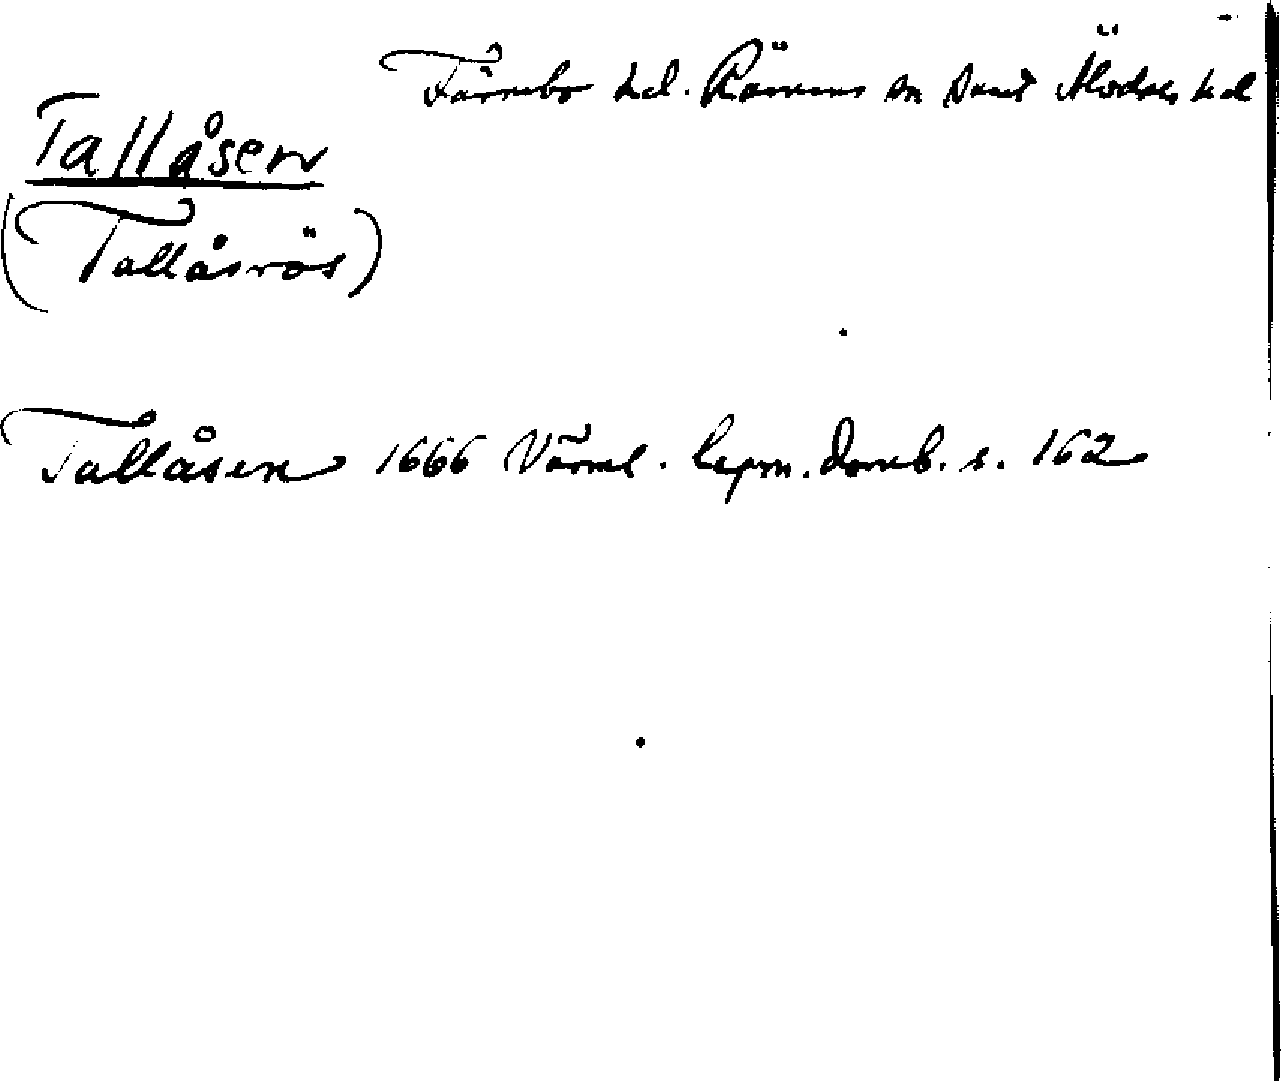 Färnebo hd. Rämens sn samt Älvdals hd
Tallåsen
(Tallåsrös)
Tallåsen 1666 Värml. lapm. domb. s. 162